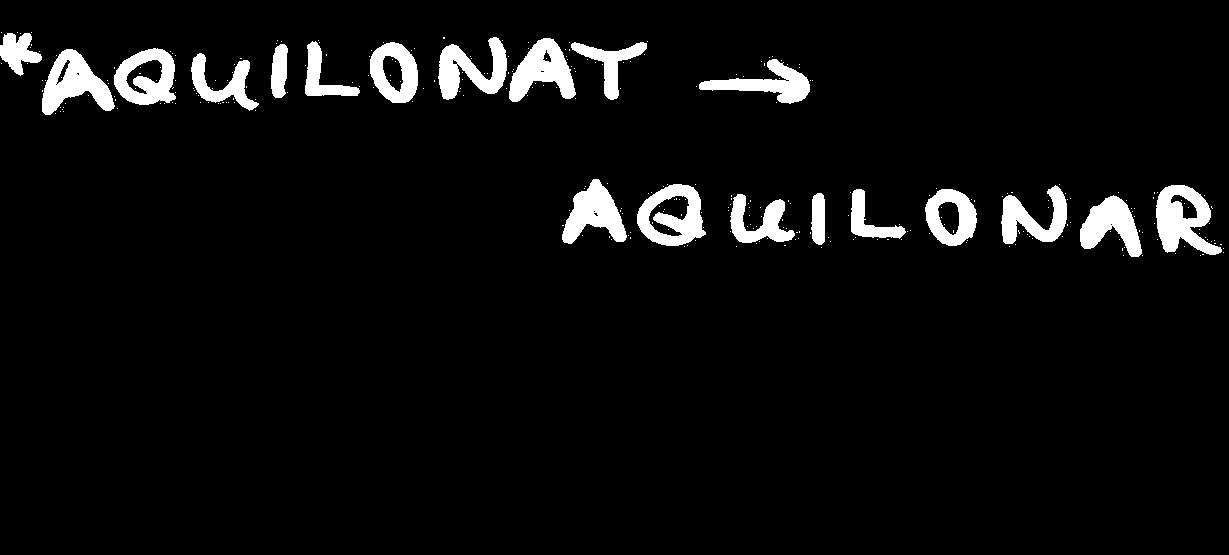 *AQUILONAT →
AQUILONAR